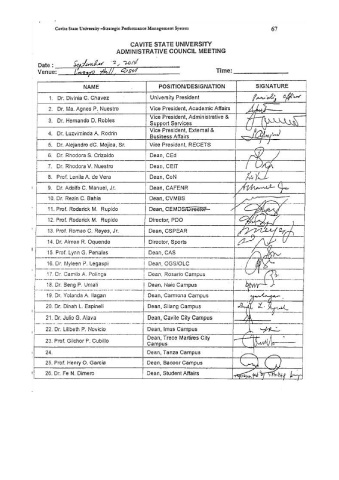 Cavite State University –Strategic Performance Management System 67
CAVITE STATE UNIVERSITY
ADMINISTRATIVE COUNCIL MEETING
Date : September 2, 2014
Venue: Time:
NAME POSITION/DESIGNATION SIGNATURE
1. Dr. Divinia C. Chavez University President
2. Dr. Ma. Agnes P. Nuestro Vice President, Academic Affairs
3. Dr. Hernando D. Robles Vice President, Administrative & Support Services
4. Dr. Luzviminda A. Rodrin Vice President, External & Business Affairs
5. Dr. Alejandro dC. Mojica, Sr. Vice President, RECETS
6. Dr. Rhodora S. Crizaldo Dean, CEd
7. Dr. Rhodora V. Nuestro Dean, CEIT
8. Prof. Lenila A. de Vera Dean, CoN
9. Dr. Adolfo C. Manuel, Jr. Dean, CAFENR
10. Dr. Rezin C. Bahia Dean, CVMBS
11. Prof. Roderick M. Rupido Dean, CEMDS/Director
12. Prof. Roderick M. Rupido Director, PDO
13. Prof. Romeo C. Reyes, Jr. Dean, CSPEAR
14. Dr. Aimee R. Oquendo Director, Sports
15. Prof. Lynn G. Penales Dean, CAS
16. Dr. Myleen P. Legaspi Dean, OGS/OLC
17. Dr. Camilo A. Polinga Dean, Rosario Campus
18. Dr. Seng P. Umali Dean, Naic Campus
19. Dr. Yolanda A. Ilagan Dean, Carmona Campus
20. Dr. Dinah L. Espineli Dean, Silang Campus
21. Dr. Julio G. Alava Dean, Cavite City Campus
22. Dr. Lilibeth P. Novicio Dean, Imus Campus
23. Prof. Gilchor P. Cubillo Dean, Trece Martires City Campus
24. Dean, Tanza Campus
25. Prof. Henry O. Garcia Dean, Bacoor Campus
26. Dr. Fe N. Dimero Dean, Student Affairs